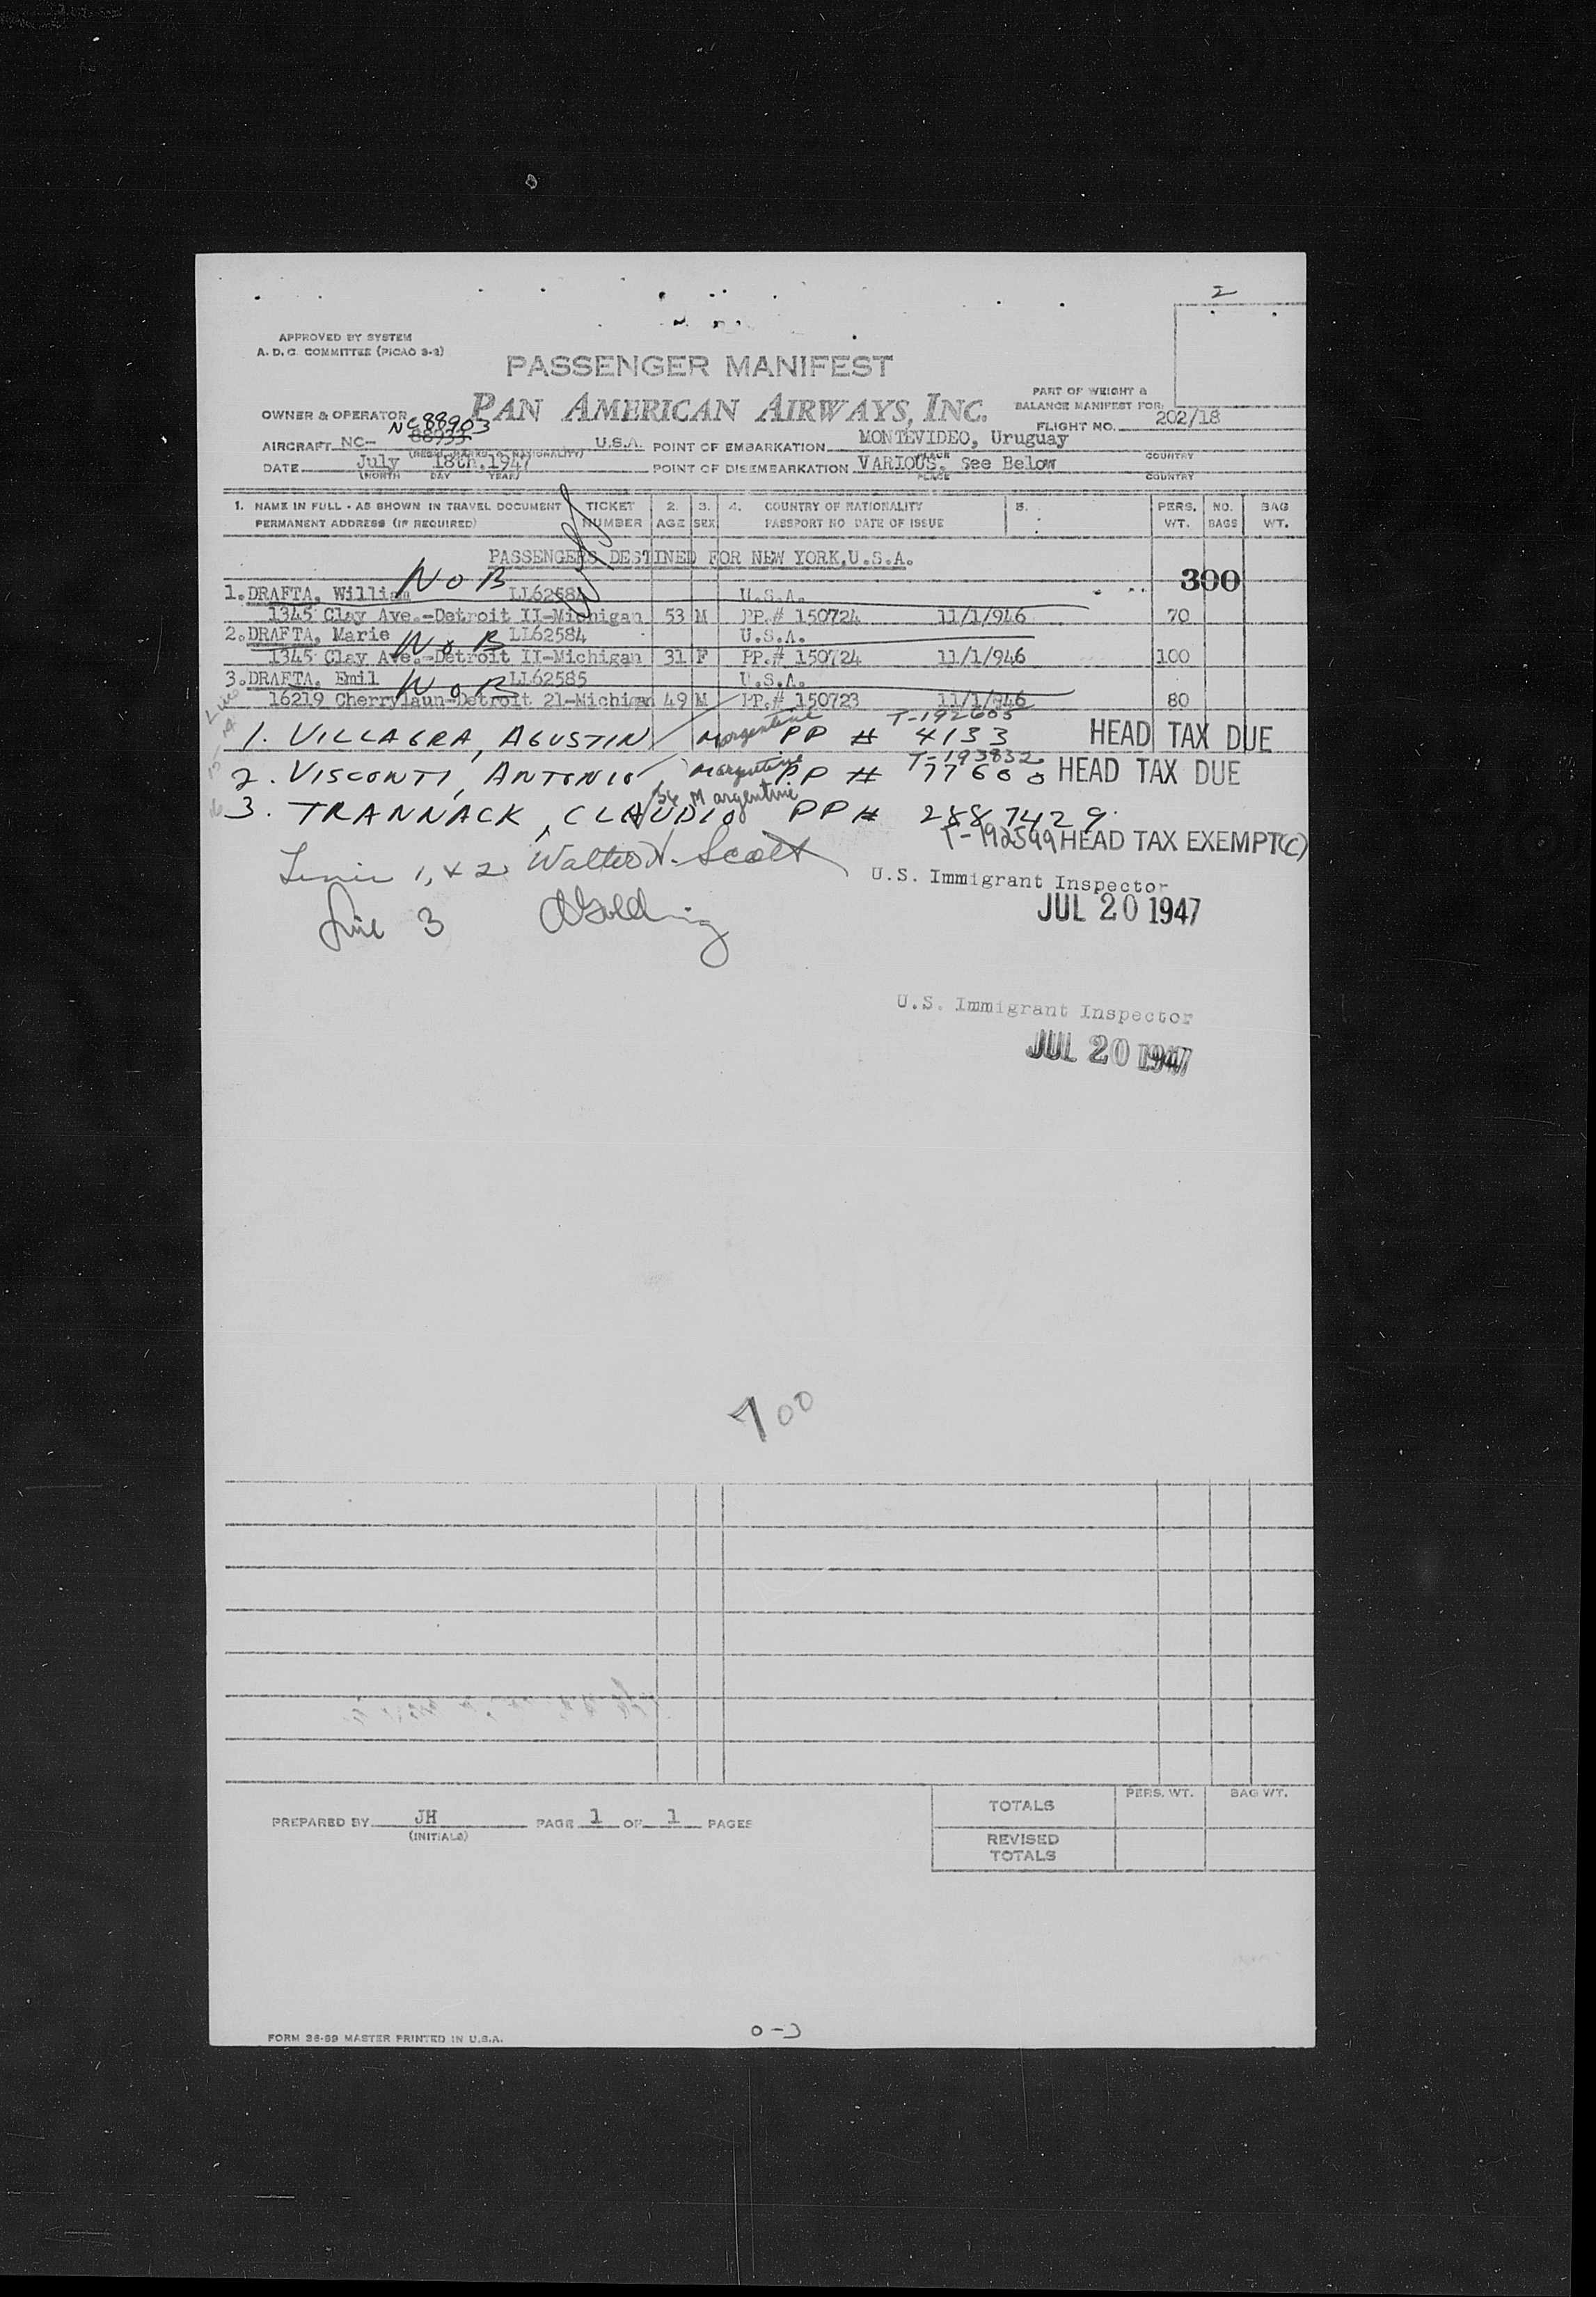 2
APPROVED BY SYSTEM
A. D. C. COMMITTEE (PICAO 3-2)
PASSENGER MANIFEST
PART OF WEIGHT &
BALANCE MANIFEST FOR:
OWNER & OPERATOR PAN AMERICAN AIRWAYS, INC.
FLIGHT NO. 202/18
NC88903
AIRCRAFT NC- 88933 U.S.A. POINT OF EMBARKATION MONTEVIDEO, Uruguay
PLACE COUNTRY
DATE July 18th, 1947 POINT OF DISEMBARKATION VARIOUS. See Below
(MONTH DAY YEAR) PLACE COUNTRY
1. NAME IN FULL - AS SHOWN IN TRAVEL DOCUMENT TICKET 2. 3. 4. COUNTRY OF NATIONALITY 5. PERS. NO. BAG
PERMANENT ADDRESS (IF REQUIRED) NUMBER AGE SEX PASSPORT NO DATE OF ISSUE WT. BAGS WT.
PASSENGERS DESTINED FOR NEW YORK, U.S.A.
300
1. DRAFTA, William NOB LL62584 U.S.A.
1345 Clay Ave.-Detroit II-Michigan 53 M PP.# 150724 11/1/946 70
2. DRAFTA, Marie NOB LL62584 U.S.A.
1345 Clay Ave.-Detroit II-Michigan 31 F PP.# 150724 11/1/946 100
3. DRAFTA, Emil NOB LL62585 U.S.A.
16219 Cherrylaun-Detroit 21-Michigan 49 M PP.# 150723 11/1/946 80
T-192605
1. VILLAGRA, AGUSTIN M argentine PP # 4133 HEAD TAX DUE
T-193832
2. VISCONTI, ANTONIO M argentine PP # 77600 HEAD TAX DUE
3. TRANNACK, CLAUDIO 36 M argentine PP # 2887429
T-192599 HEAD TAX EXEMPT (C)
Line 1, & 2 Walter H. Scott
U.S. Immigrant Inspector
JUL 20 1947
Line 3 Golding
U.S. Immigrant Inspector
JUL 20 1947
700
PERS. WT. BAG WT.
TOTALS
PREPARED BY JH PAGE 1 OF 1 PAGES
(INITIALS)
REVISED
TOTALS
0-3
FORM 36-99 MASTER PRINTED IN U.S.A.